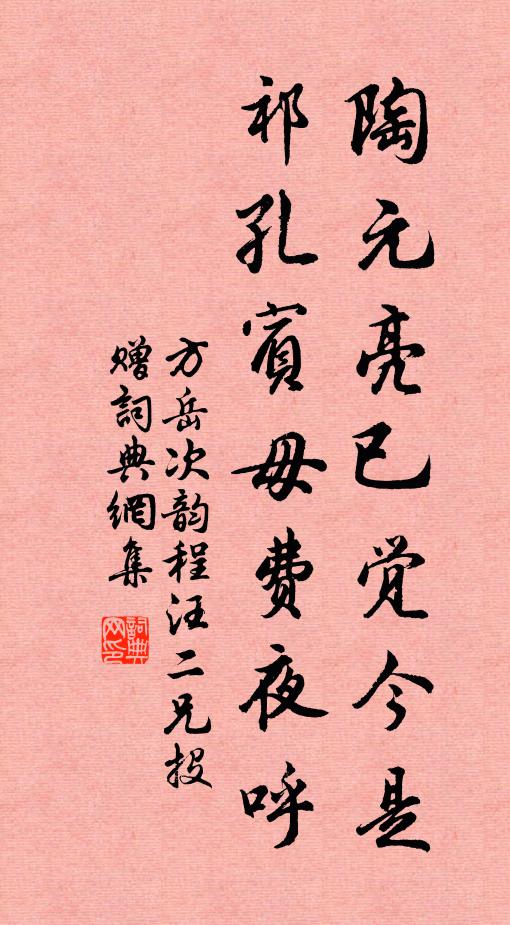 陶元亮已觉今是
祁孔宾毋费夜呼
方岳次韵程汪二兄投
赠詞典網集
詞典网印